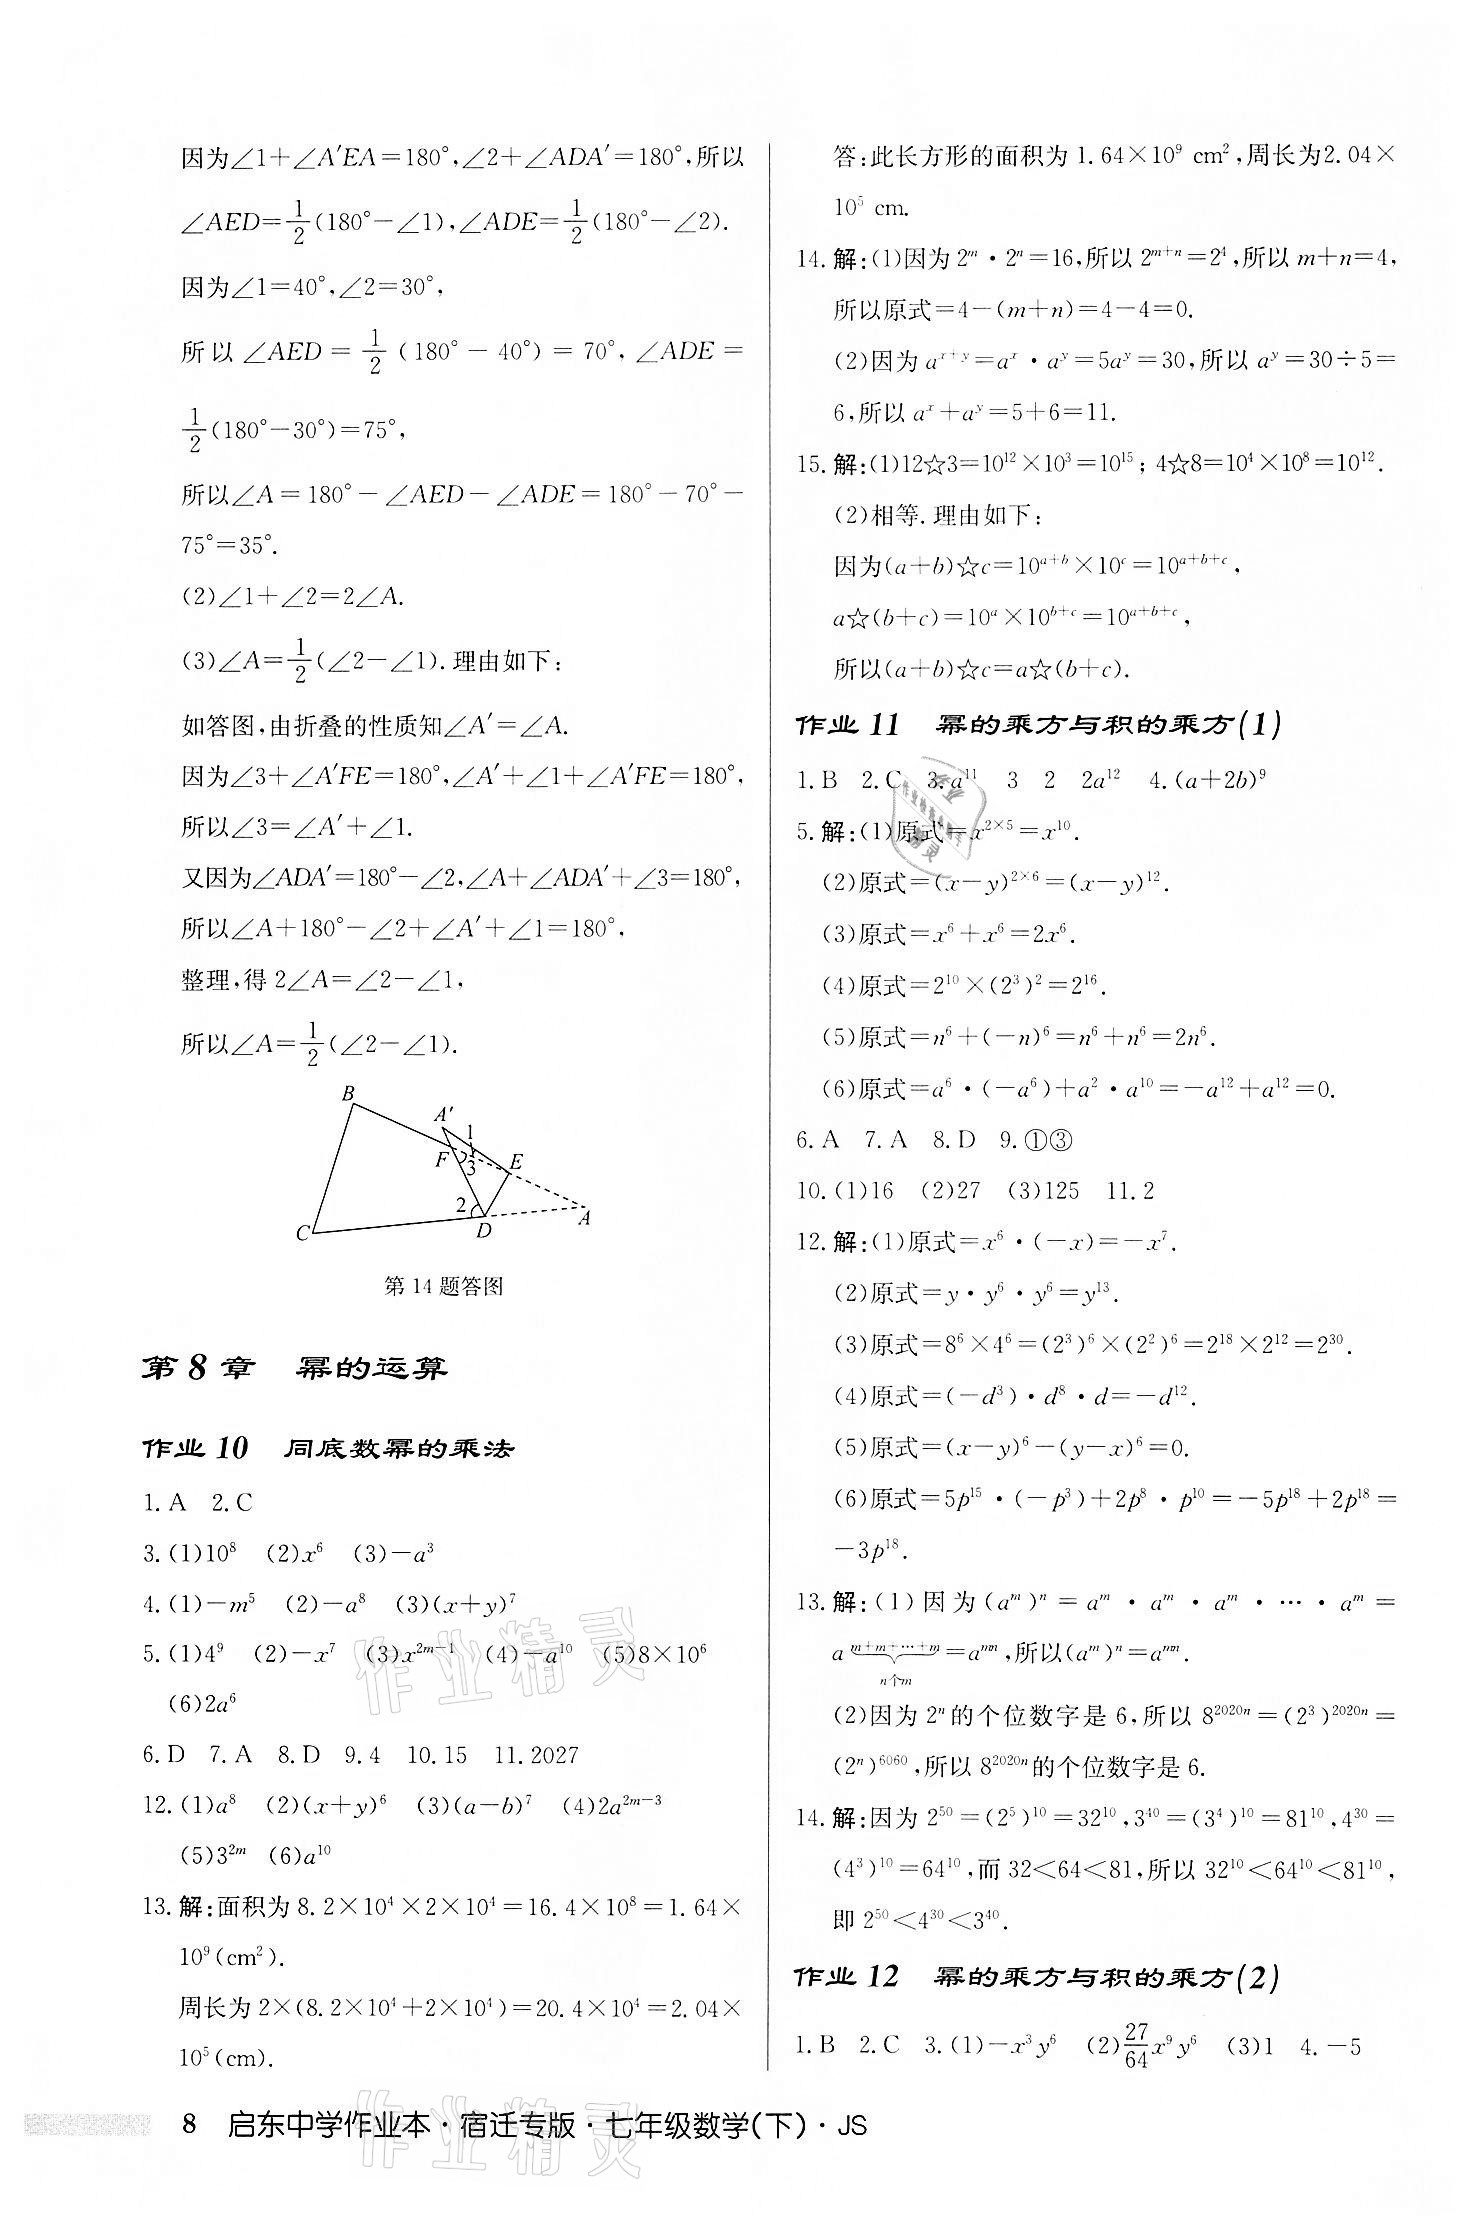 因为∠1+∠A′EA=180°,∠2+∠ADA′=180°,所以
∠AED=1/2(180°-∠1),∠ADE=1/2(180°-∠2).
因为∠1=40°,∠2=30°,
所以∠AED=1/2(180°-40°)=70°,∠ADE=
1/2(180°-30°)=75°,
所以∠A=180°-∠AED-∠ADE=180°-70°-
75°=35°.
(2)∠1+∠2=2∠A.
(3)∠A=1/2(∠2-∠1).理由如下:
如答图,由折叠的性质知∠A′=∠A.
因为∠3+∠A′FE=180°,∠A′+∠1+∠A′FE=180°,
所以∠3=∠A′+∠1.
又因为∠ADA′=180°-∠2,∠A+∠ADA′+∠3=180°,
所以∠A+180°-∠2+∠A′+∠1=180°,
整理,得2∠A=∠2-∠1,
所以∠A=1/2(∠2-∠1).
B
A′
1
F
3
E
2
C
D
A
第14题答图
第8章 幂的运算
作业10 同底数幂的乘法
1.A 2.C
3.(1)10⁸ (2)x⁶ (3)-a³
4.(1)-m⁵ (2)-a⁸ (3)(x+y)⁷
5.(1)4⁹ (2)-x⁷ (3)x²ᵐ⁻¹ (4)-a¹⁰ (5)8×10⁶
(6)2a⁶
6.D 7.A 8.D 9.4 10.15 11.2027
12.(1)a⁸ (2)(x+y)⁶ (3)(a-b)⁷ (4)2a²ᵐ⁻³
(5)3²ᵐ (6)a¹⁰
13.解:面积为8.2×10⁴×2×10⁴=16.4×10⁸=1.64×
10⁹(cm²).
周长为2×(8.2×10⁴+2×10⁴)=20.4×10⁴=2.04×
10⁵(cm).
答:此长方形的面积为1.64×10⁹ cm²,周长为2.04×
10⁵ cm.
14.解:(1)因为2ᵐ·2ⁿ=16,所以2ᵐ⁺ⁿ=2⁴,所以m+n=4,
所以原式=4-(m+n)=4-4=0.
(2)因为aˣ⁺ʸ=aˣ·aʸ=5aʸ=30,所以aʸ=30÷5=
6,所以aˣ+aʸ=5+6=11.
15.解:(1)12☆3=10¹²×10³=10¹⁵;4☆8=10⁴×10⁸=10¹².
(2)相等.理由如下:
因为(a+b)☆c=10ᵃ⁺ᵇ×10ᶜ=10ᵃ⁺ᵇ⁺ᶜ,
a☆(b+c)=10ᵃ×10ᵇ⁺ᶜ=10ᵃ⁺ᵇ⁺ᶜ,
所以(a+b)☆c=a☆(b+c).
作业11 幂的乘方与积的乘方(1)
1.B 2.C 3.a¹¹ 3 2 2a¹² 4.(a+2b)⁹
5.解:(1)原式=x²ˣ⁵=x¹⁰.
(2)原式=(x-y)²ˣ⁶=(x-y)¹².
(3)原式=x⁶+x⁶=2x⁶.
(4)原式=2¹⁰×(2³)²=2¹⁶.
(5)原式=n⁶+(-n)⁶=n⁶+n⁶=2n⁶.
(6)原式=a⁶·(-a⁶)+a²·a¹⁰=-a¹²+a¹²=0.
6.A 7.A 8.D 9.①③
10.(1)16 (2)27 (3)125 11.2
12.解:(1)原式=x⁶·(-x)=-x⁷.
(2)原式=y·y⁶·y⁶=y¹³.
(3)原式=8⁶×4⁶=(2³)⁶×(2²)⁶=2¹⁸×2¹²=2³⁰.
(4)原式=(-d³)·d⁸·d=-d¹².
(5)原式=(x-y)⁶-(y-x)⁶=0.
(6)原式=5p¹⁵·(-p³)+2p⁸·p¹⁰=-5p¹⁸+2p¹⁸=
-3p¹⁸.
13.解:(1)因为(aᵐ)ⁿ=aᵐ·aᵐ·aᵐ·…·aᵐ=
a m+m+…+m =aᵐⁿ,所以(aᵐ)ⁿ=aᵐⁿ.
n个m
(2)因为2ⁿ的个位数字是6,所以8²⁰²⁰ⁿ=(2³)²⁰²⁰ⁿ=
(2ⁿ)⁶⁰⁶⁰,所以8²⁰²⁰ⁿ的个位数字是6.
14.解:因为2⁵⁰=(2⁵)¹⁰=32¹⁰,3⁴⁰=(3⁴)¹⁰=81¹⁰,4³⁰=
(4³)¹⁰=64¹⁰,而32<64<81,所以32¹⁰<64¹⁰<81¹⁰,
即2⁵⁰<4³⁰<3⁴⁰.
作业12 幂的乘方与积的乘方(2)
1.B 2.C 3.(1)-x³y⁶ (2)27/64x⁹y⁶ (3)1 4.-5
8 启东中学作业本·宿迁专版·七年级数学(下)·JS
作业精灵
作业精灵